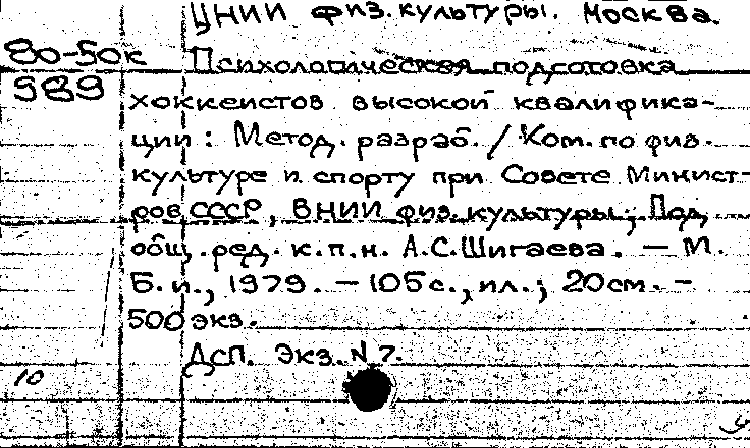 ЦНИИ физ. культуры. Москва.
80-50к
989
Психологическая подготовка
хоккеистов высокой квалифика-
ции: Метод. разраб. / Ком. по физ.
культуре и спорту при Совете Минист-
ров СССР, ВНИИ физ. культуры; Под
общ. ред. к.п.н. А.С.Шигаева. — М.
Б. и., 1979. — 105с., ил.; 20см. -
500 экз.
ДСП. Экз. N 7.
10